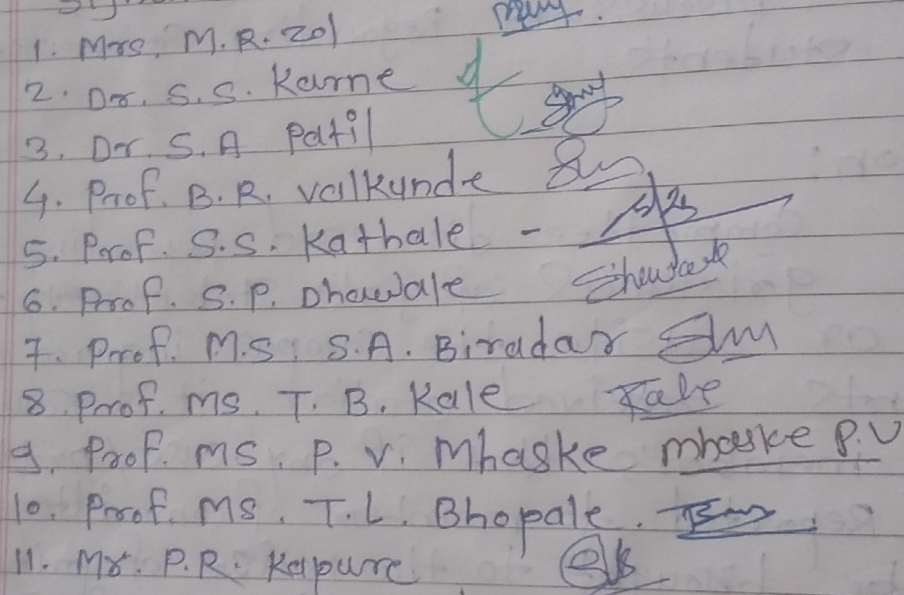 1. Mrs. M.R. Zol
2. Dr. S.S. Karne
3. Dr. S.A Patil
4. Prof. B.R. Valkunde
5. Prof. S.S. Kathale -
6. Prof. S.P. Dhawale
7. Prof. M.S. S.A. Biradar
8. Prof. MS. T. B. Kale Kale
9. Prof. MS. P. V. Mhaske mhaske P.V
10. Prof. MS. T.L. Bhopale.
11. Mr. P.R. Kapure